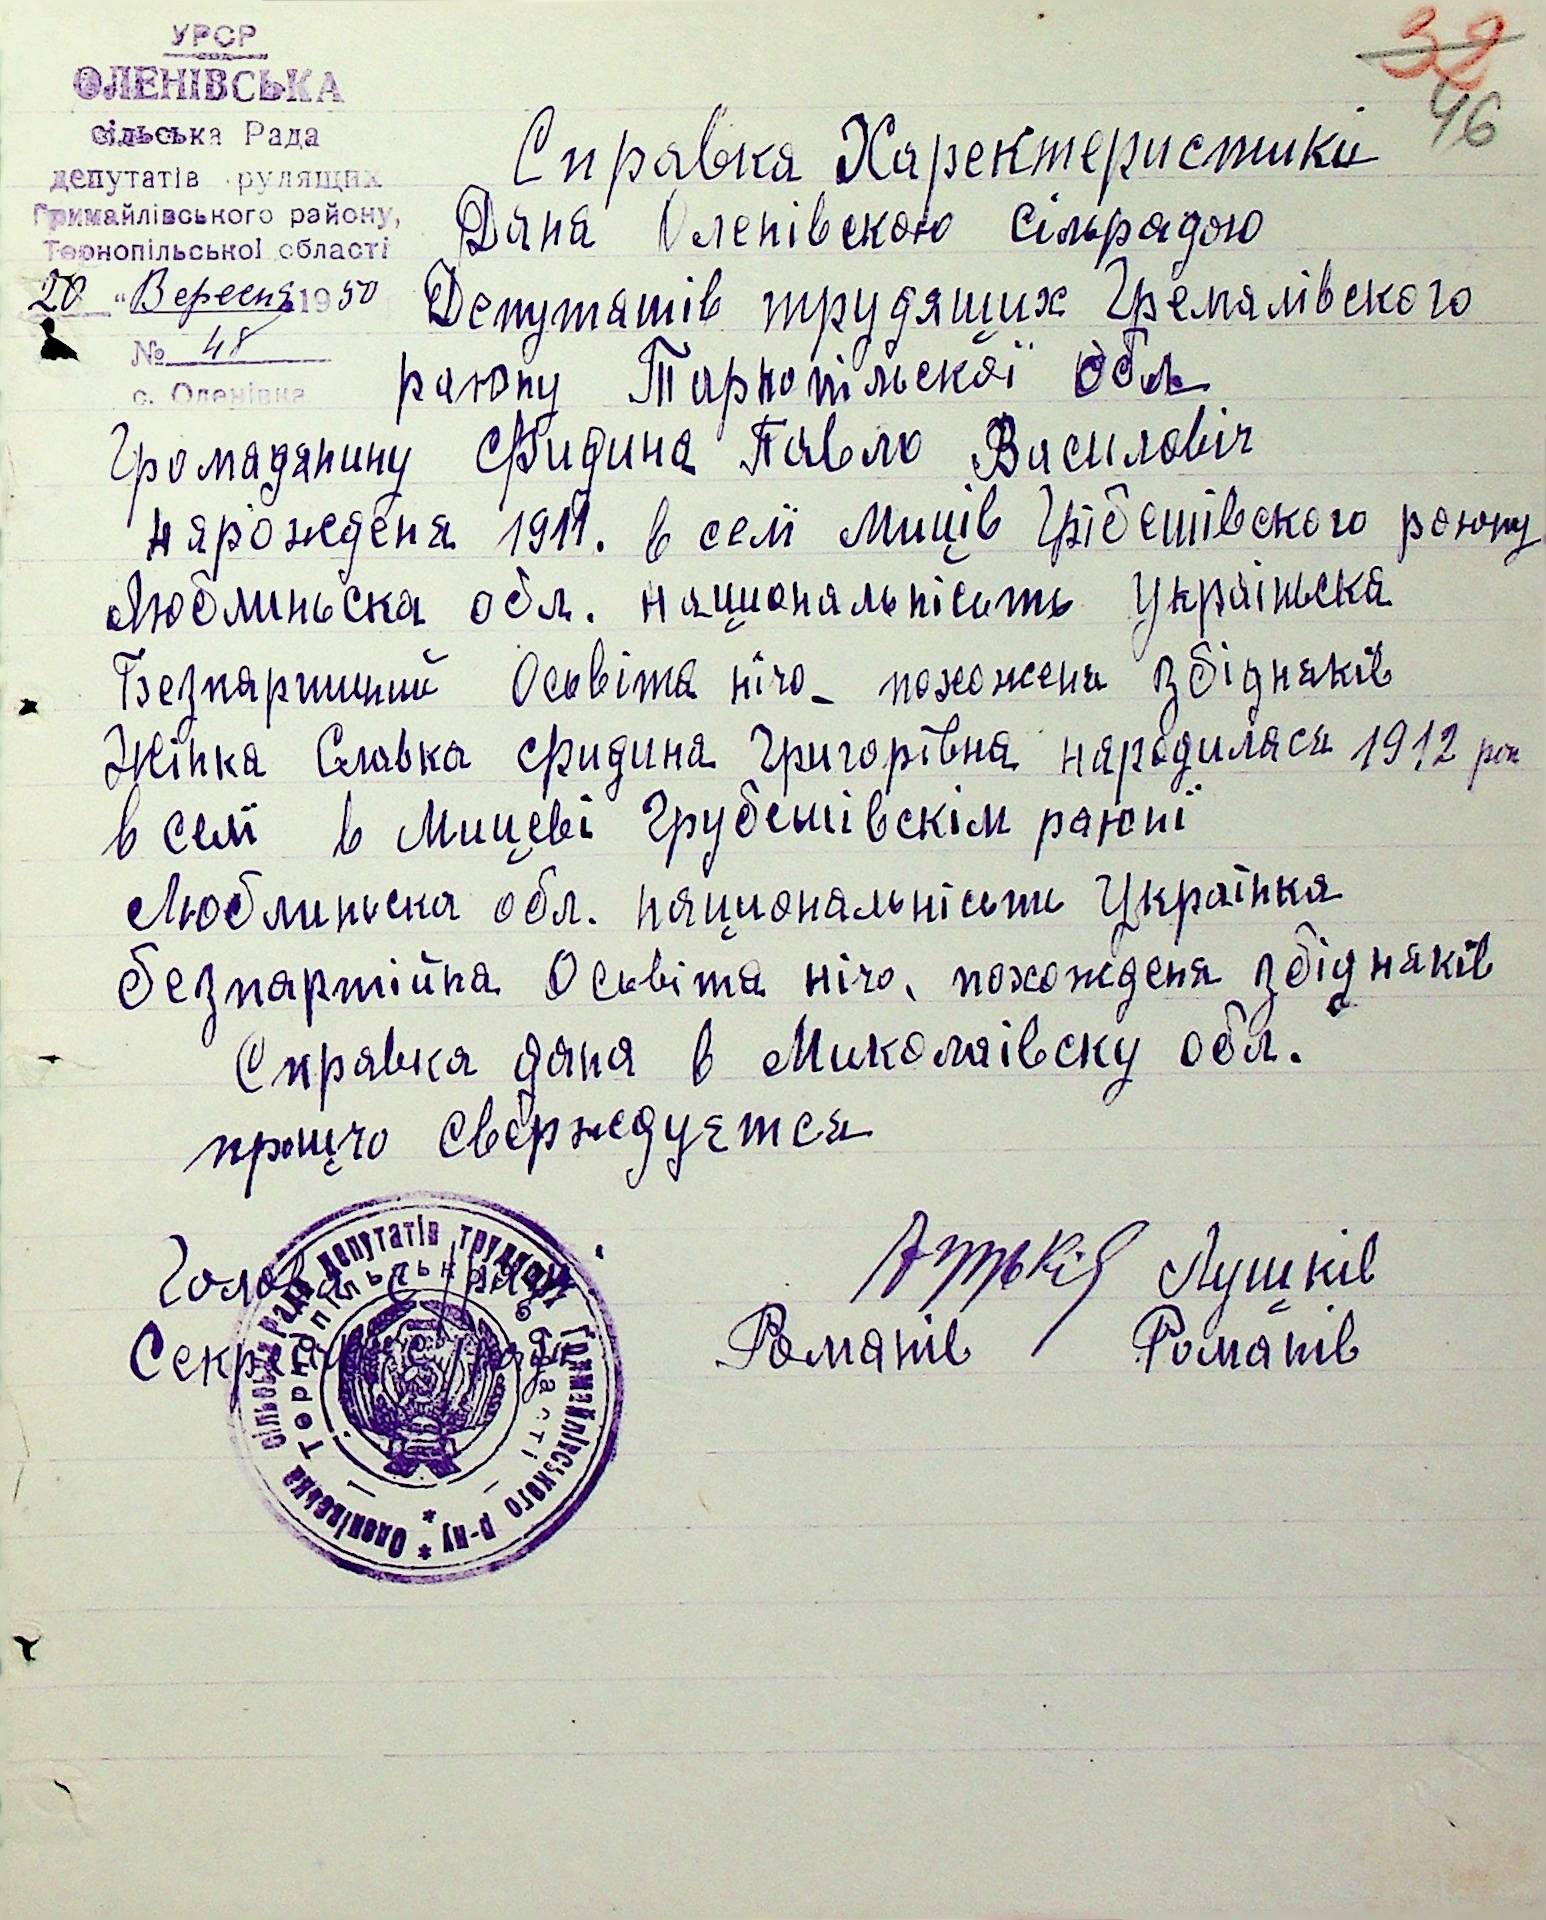 УРСР
ОЛЕНІВСЬКА
сільська Рада
депутатів рудящих
Гримайлівського району,
Тернопільської області
20 "Вересня 1950
№ 48
с. Оленівка
32
46
Справка Характеристики
Дана Оленівскою сільрадою
Депутатів трудящих Гремалівского
раюну Тарнопільскої обл
Громадянину Фидина Павло Василовіч
нярождена 1911. в селї Мицїв Грібешівского раюну
Люблиньска обл. национальнісьть Украіньска
Безпартийний Осьвіта нічо_ похожена збідняків
Жінка Славка Фидина Григорівна народилася 1912 рок
в селї в Мицеві Грубешівскім раюнї
Люблиньска обл. национальнісьть Українка
безпартійна Осьвіта нічо, похождена збідняків
Справка дана в Миколаівску обл.
прощчо свєрждуетса
Голова с/ради Лушків
Секретар с/ради Романів Романів
Оленівська сільська рада депутатів трудящих Гримайлівського р-ну *
Тернопільської області